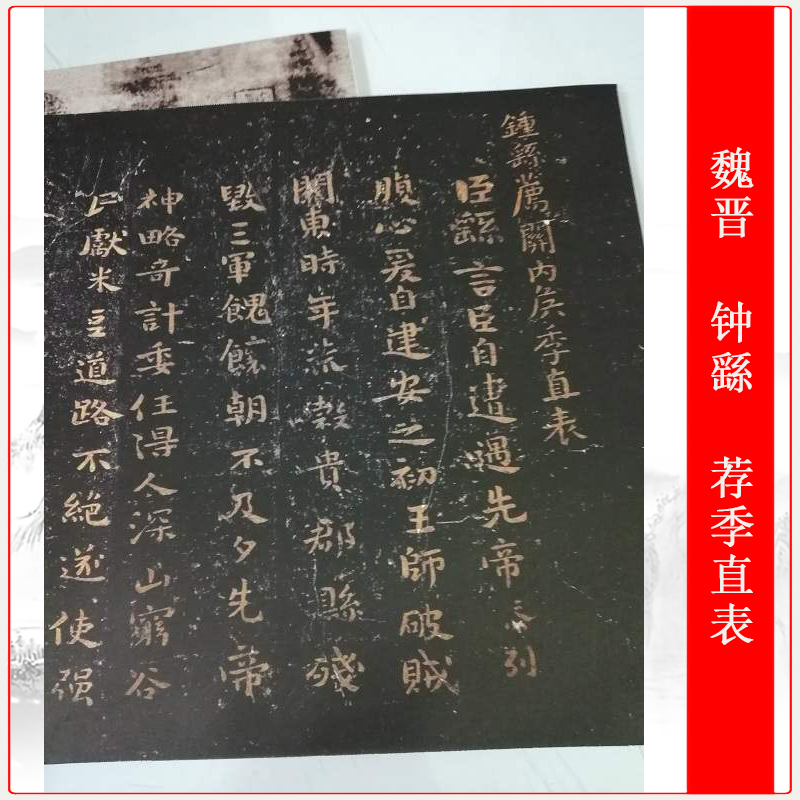 魏晋 钟繇 荐季直表
鍾繇薦關内侯季直表
臣繇言臣自遭遇先帝忝列
腹心爰自建安之初王師破賊
關東時年荒穀貴郡縣殘
毀三軍餽饟朝不及夕先帝
神略奇計委任得人深山窮谷
民獻米豆道路不絕遂使强